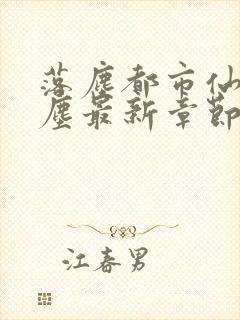 落塵都市仙
塵最新章節
江春男